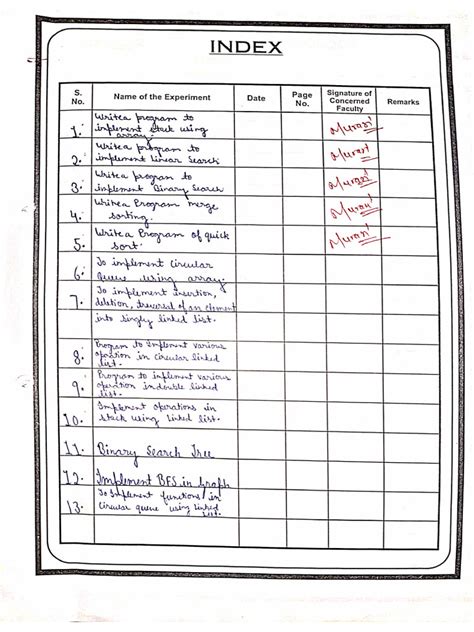 INDEX
S. No. Name of the Experiment Date Page No. Signature of Concerned Faculty Remarks
1. Write a program to
implement stack using
array.
2. Write a program to
implement Linear Search
3. Write a program to
implement Binary Search
4. Write a Program merge
sorting.
5. Write a Program of quick
sort.
6. To implement Circular
Queue using array.
7. To implement insertion,
deletion, traversal of an element
into singly linked list.
8. Program to Implement various
operation in circular linked
list.
9. Program to implement various
operation in double linked
list.
10. Implement operations in
stack using linked list.
11. Binary Search Tree
12. Implement BFS in Graph
13. To Implement functions in
Circular queue using linked
list.